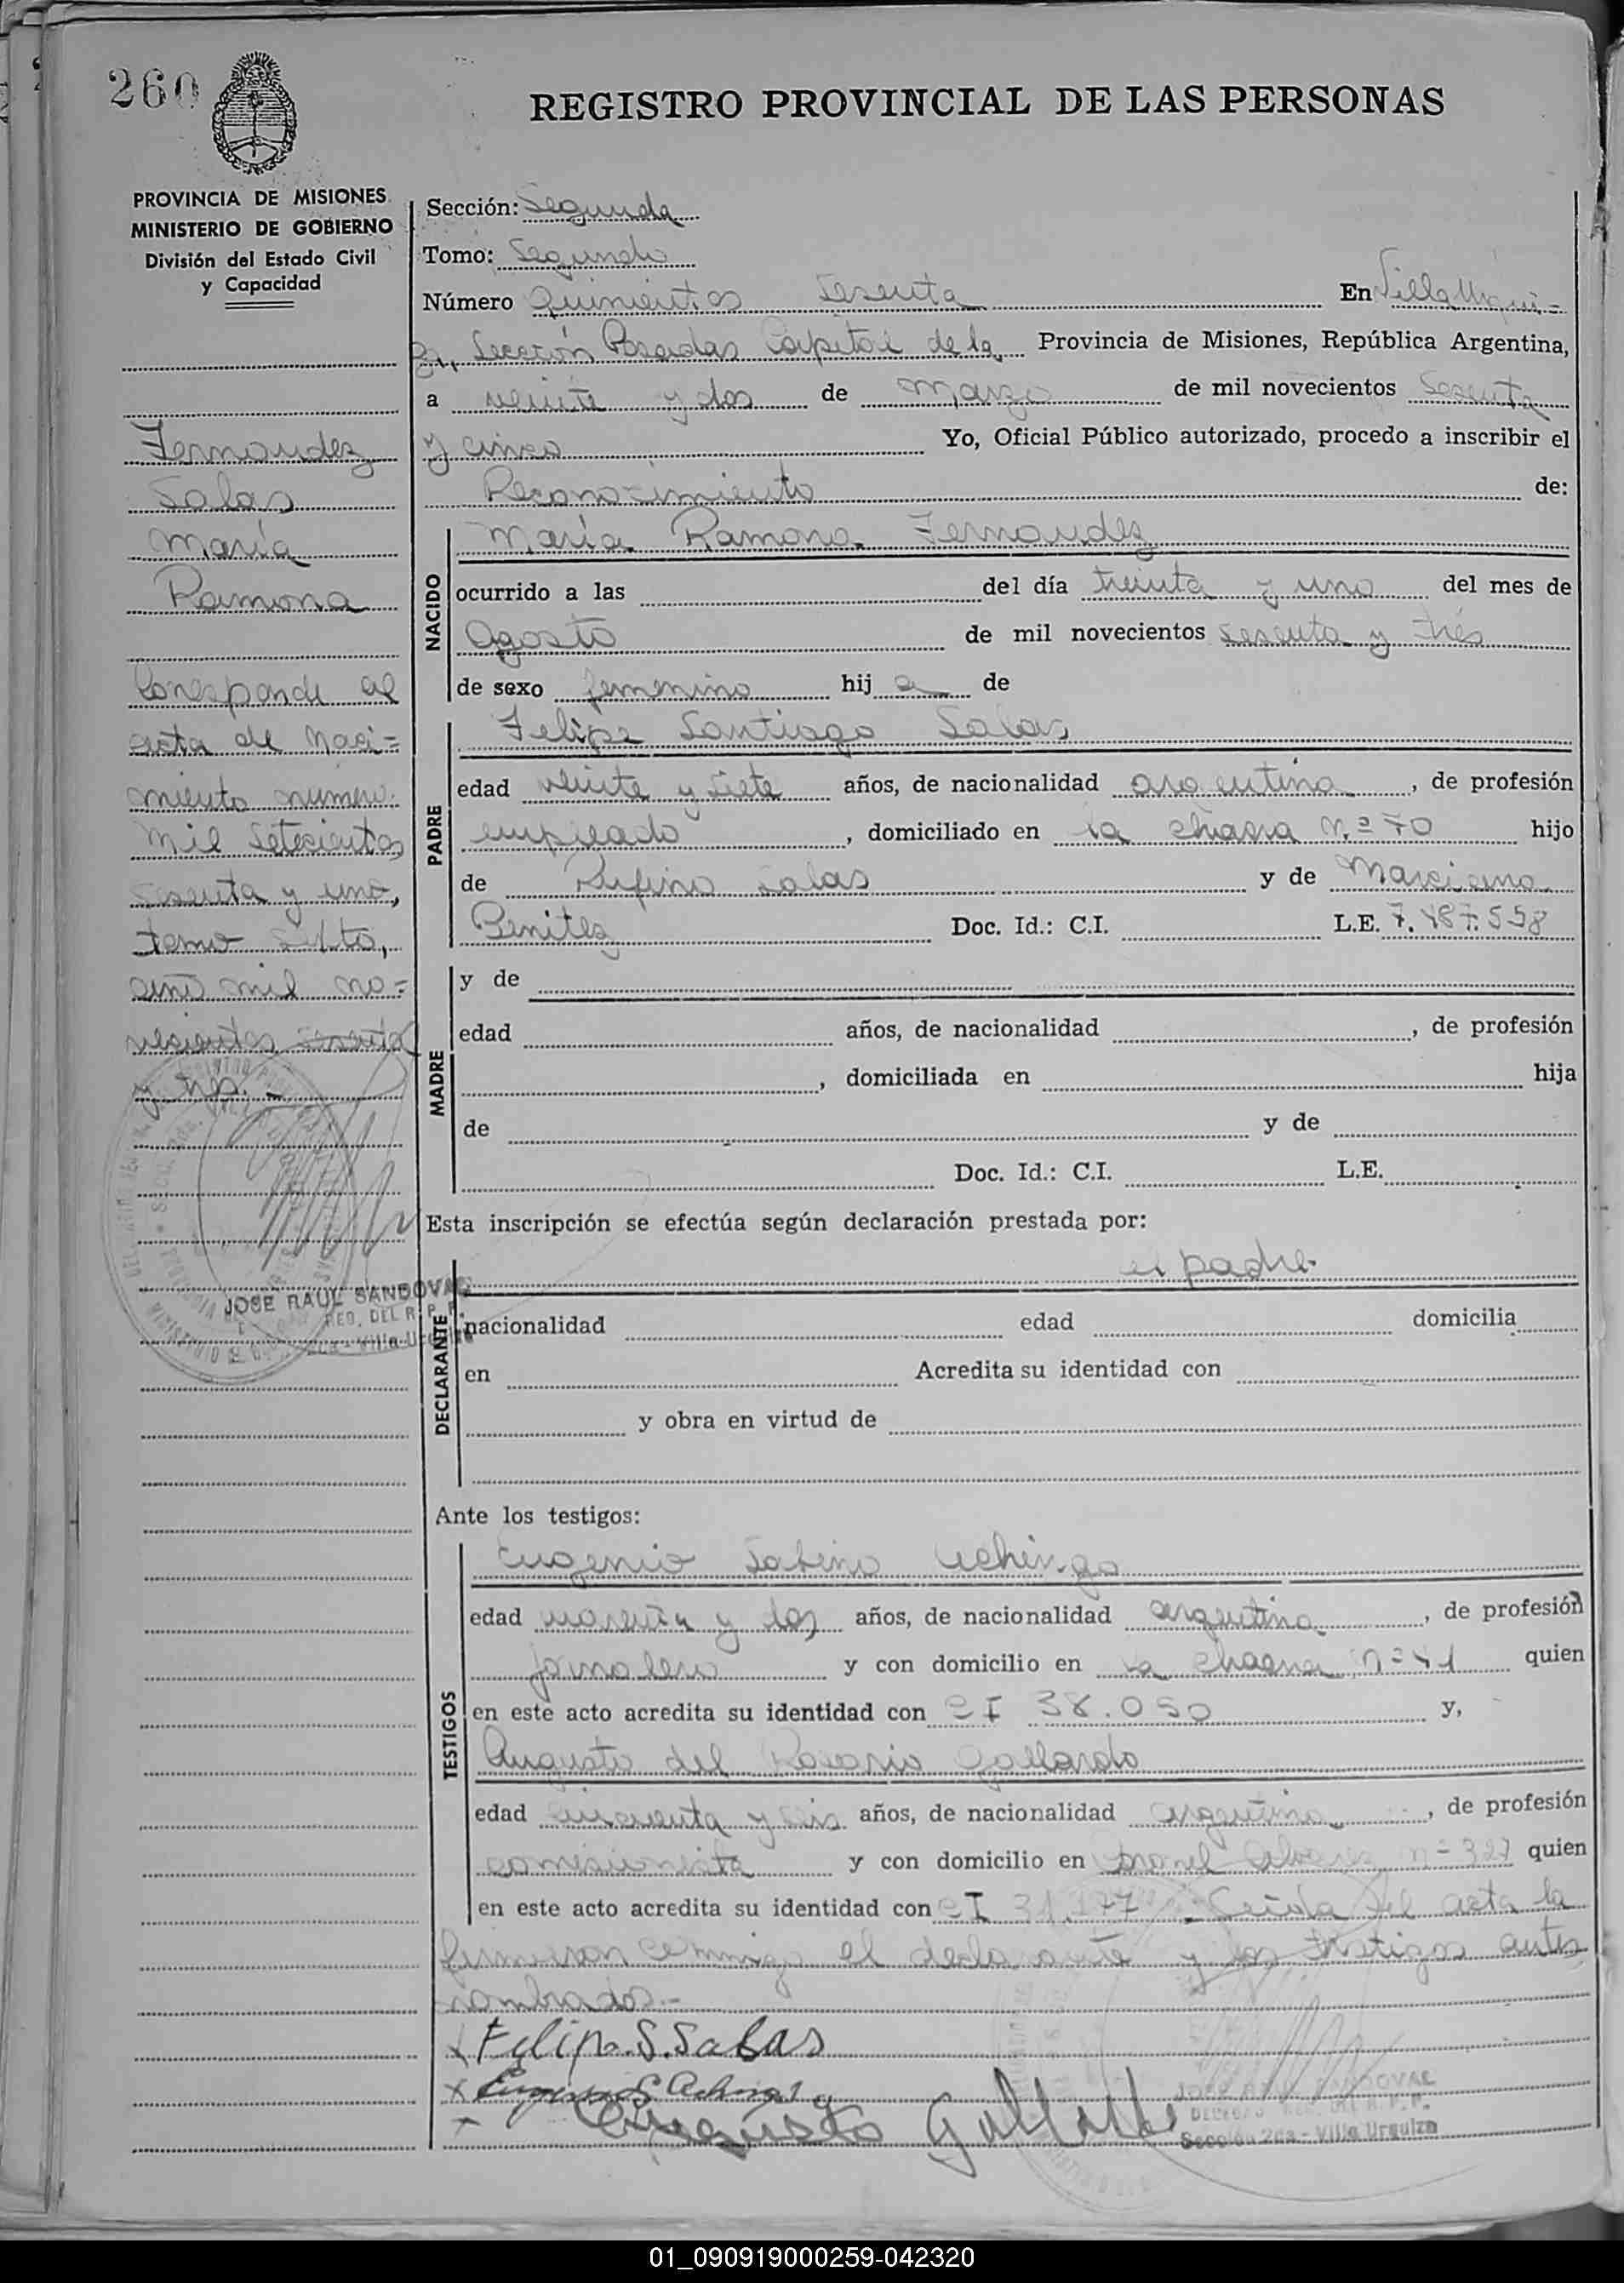 260
REGISTRO PROVINCIAL DE LAS PERSONAS
PROVINCIA DE MISIONES
MINISTERIO DE GOBIERNO
División del Estado Civil
y Capacidad
Fernandez
Salas
María
Ramona
Corresponde al
acta de naci=
miento número
mil setecientos
sesenta y uno,
tomo sexto,
año mil no=
vecientos sesenta
y tres.-
JOSE RAUL SANDOVAL
REG. DEL R. P. P.
2da - Villa Urquiza
Sección: Segunda
Tomo: Segundo
Número Quinientos sesenta En Villa Urqui=
za, Sección Posadas Capital de la Provincia de Misiones, República Argentina,
a veinte y dos de Marzo de mil novecientos sesenta
y cinco Yo, Oficial Público autorizado, procedo a inscribir el
Reconocimiento de:
NACIDO
María Ramona Fernandez
ocurrido a las del día treinta y uno del mes de
Agosto de mil novecientos sesenta y trés
de sexo femenino hij a de
PADRE
Felipe Santiago Salas
edad veinte y siete años, de nacionalidad argentina, de profesión
empleado, domiciliado en la chacra N.º 70 hijo
de Rufino Salas y de Marciana
Benitez Doc. Id.: C.I. L.E. 7.487.558
MADRE
y de
edad años, de nacionalidad , de profesión
, domiciliada en hija
de y de
Doc. Id.: C.I. L.E.
Esta inscripción se efectúa según declaración prestada por:
DECLARANTE
el padre
nacionalidad edad domicilia
en Acredita su identidad con
y obra en virtud de
Ante los testigos:
TESTIGOS
Eugenio Sabino
edad y dos años, de nacionalidad argentina, de profesión
jornalero y con domicilio en la chacra nº 41 quien
en este acto acredita su identidad con CI 38.050 y,
Augusto del Rosario Gallardo
edad cincuenta y seis años, de nacionalidad argentina, de profesión
comisionista y con domicilio en Coronel Alvarez nº 327 quien
en este acto acredita su identidad con CI 31.177 .- Leida el acta la
firmaron conmigo el declarante y los testigos antes
nombrados.-
x Felipe. S. Salas
x
x Augusto Gallardo
JOSE RAUL SANDOVAL
DELEGADO REG. DEL R. P. P.
Sección 2da - Villa Urquiza
01_090919000259-042320